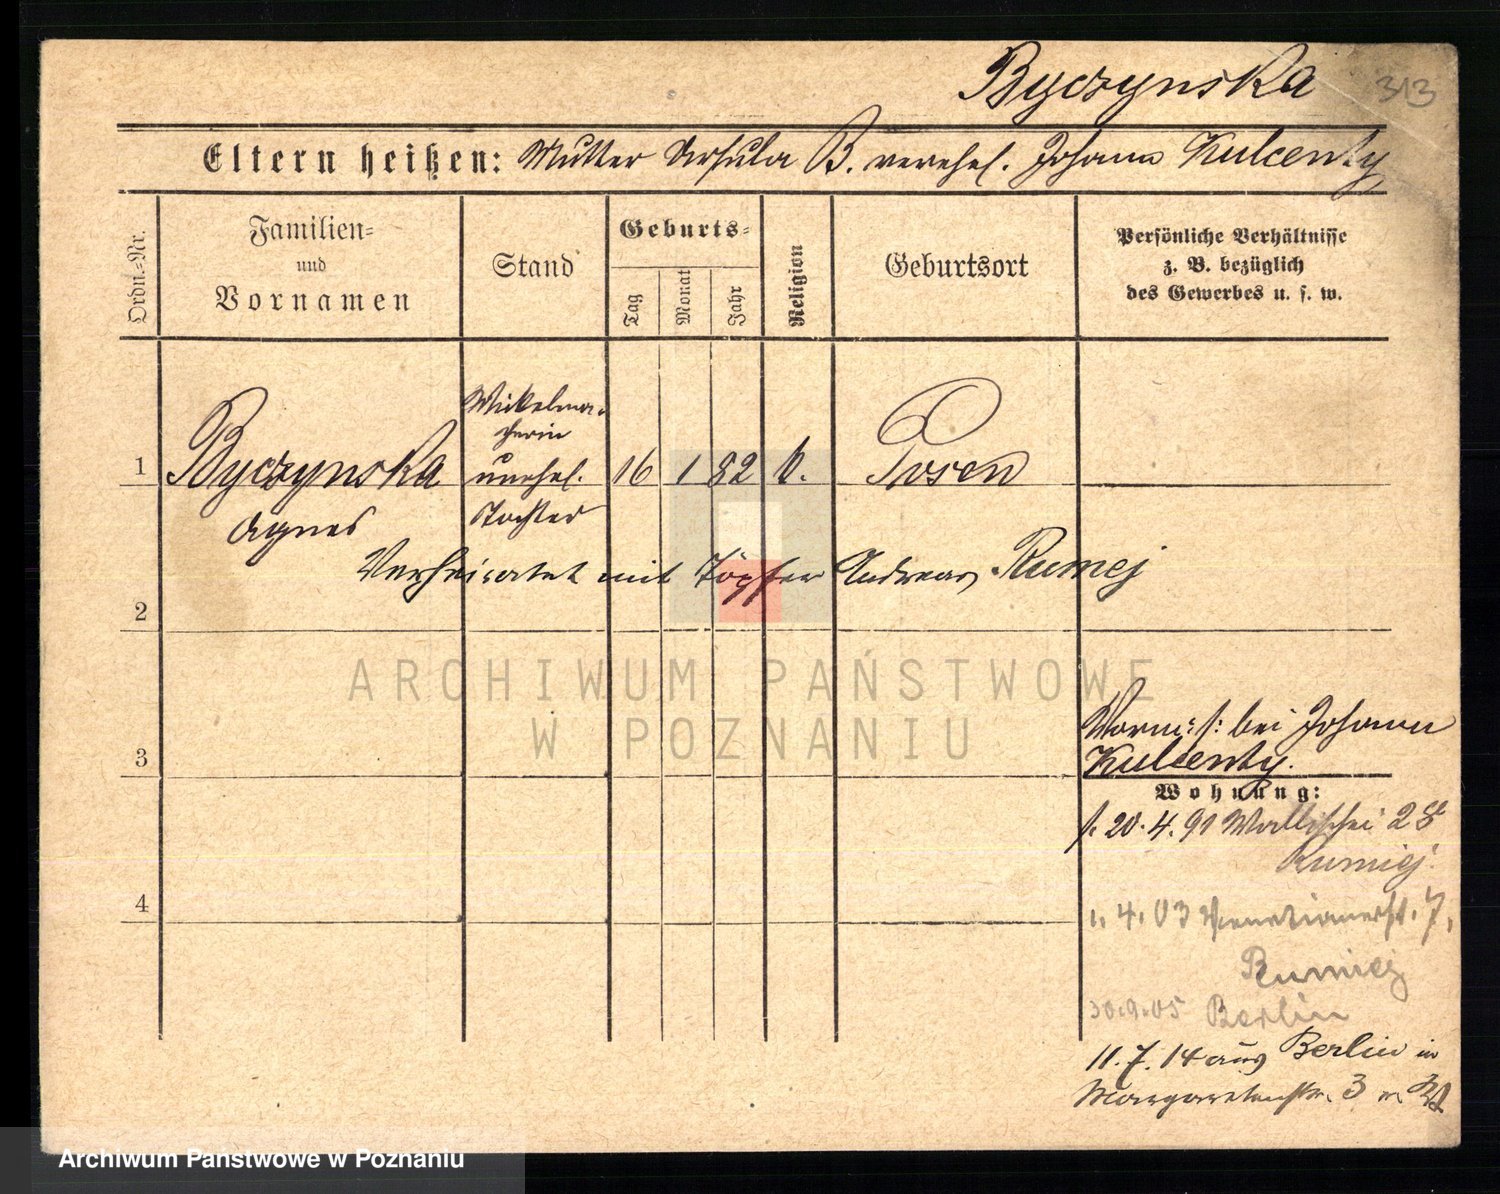 Byczynska 313
Eltern heißen: Mutter Ursula B. verehel. Johann Kulcenty
Ordn.-Nr.
Familien-
und
Vornamen
Stand
Geburts-
Tag
Monat
Jahr
Religion
Geburtsort
Persönliche Verhältnisse
z. B. bezüglich
des Gewerbes u. s. w.
Wickelma-
cherin
1 Byczynska unehel. 16 1 82 k. Posen
Agnes Tochter
Verheiratet mit Töpfer Andreas Rumej
2
ARCHIWUM PAŃSTWOWE
W POZNANIU
3
Vorm. s. bei Johann
Kulcenty.
Wohnung:
s. 20.4.91 Wallischei 28
Rumiej.
4
1.4.03 Venetianerstr. 7,
Rumiej
30.9.05 Berlin
11.7.14 aus Berlin in
Margaretenstr. 3
Archiwum Państwowe w Poznaniu